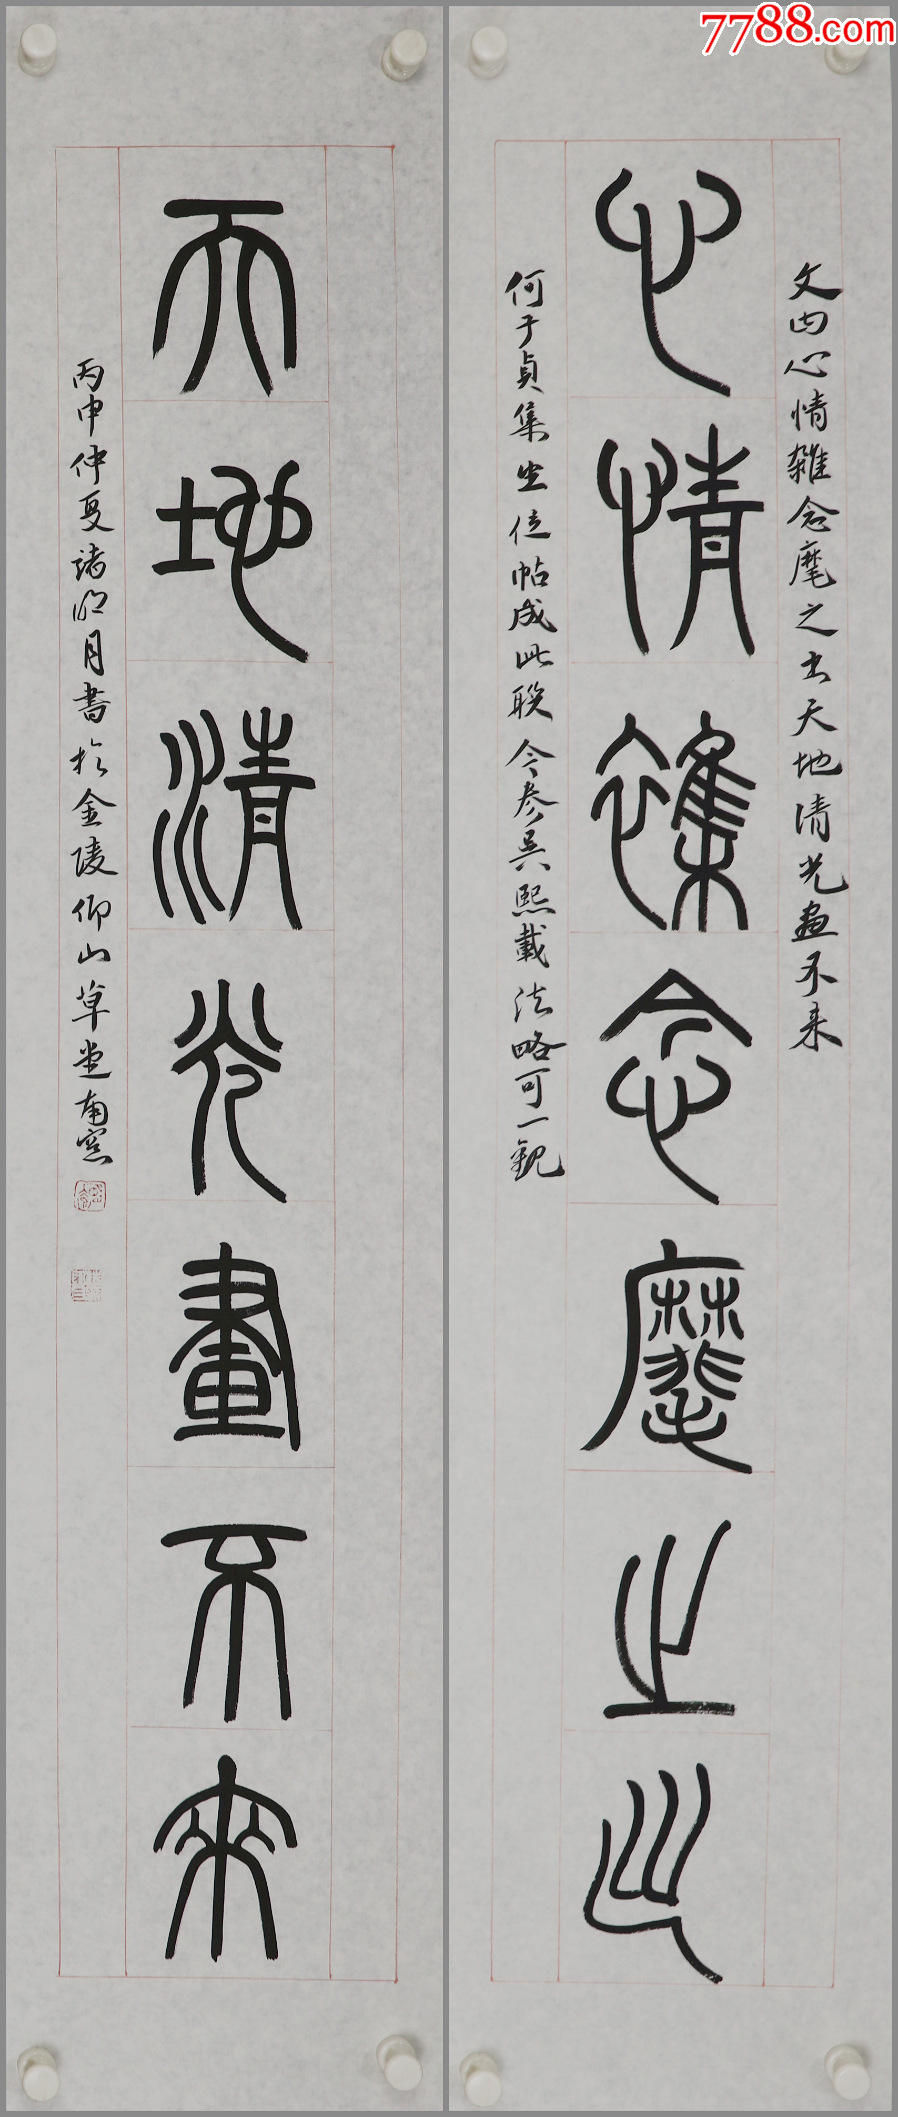 7788.com
文曰心情雜念麾之去天地清光畫不来
心情雜念麾之去
何子貞集坐位帖成此聯今參吳熙載法略可一觀
天地清光畫不來
丙申仲夏諸明月書於金陵仰山草堂南窓